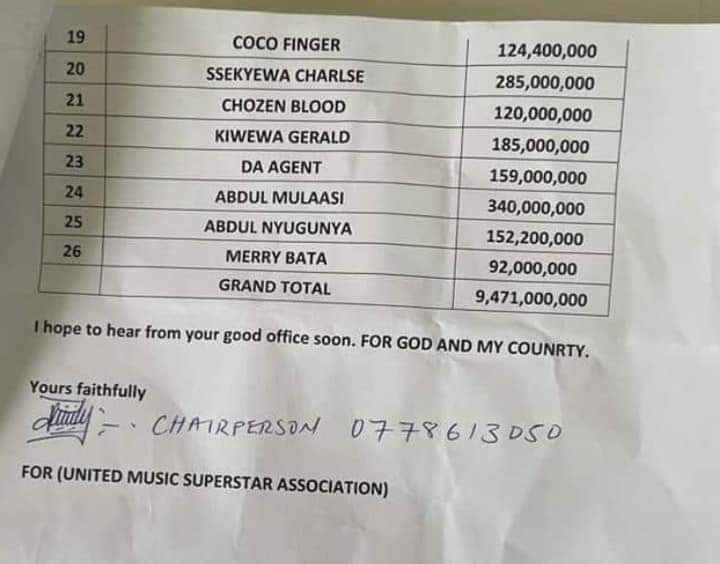 19 COCO FINGER 124,400,000
20 SSEKYEWA CHARLSE 285,000,000
21 CHOZEN BLOOD 120,000,000
22 KIWEWA GERALD 185,000,000
23 DA AGENT 159,000,000
24 ABDUL MULAASI 340,000,000
25 ABDUL NYUGUNYA 152,200,000
26 MERRY BATA 92,000,000
GRAND TOTAL 9,471,000,000
I hope to hear from your good office soon. FOR GOD AND MY COUNRTY.
Yours faithfully
CHAIRPERSON 0778613050
FOR (UNITED MUSIC SUPERSTAR ASSOCIATION)